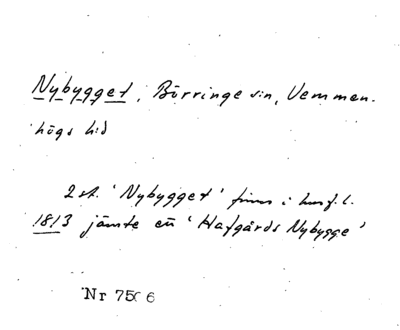 Nybygget, Börringe sn, Vemmen-
högs hd
2 st. 'Nybygget' finns i husf.l.
1813 jämte ett 'Hafgårds Nybygge'
Nr 7506